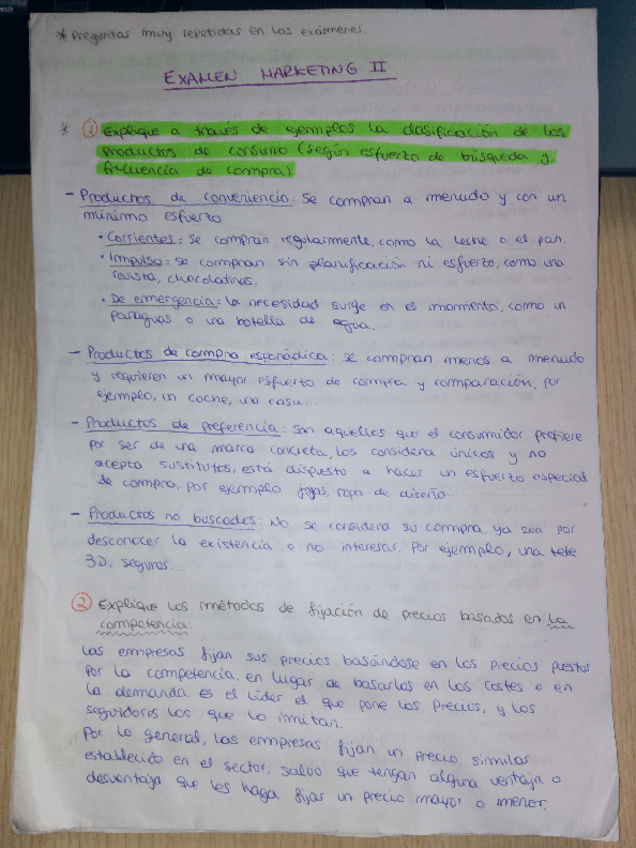 * Preguntas muy repetidas en los exámenes.
EXAMEN MARKETING II
* ① Explique a través de ejemplos la clasificación de los
productos de consumo (según esfuerzo de búsqueda y
frecuencia de compra)
- Productos de conveniencia: Se compran a menudo y con un
mínimo esfuerzo
• Corrientes: se compran regularmente, como la leche o el pan.
• Impulso: se compran sin planificación ni esfuerzo, como una
revista, chocolatinas.
• De emergencia: la necesidad surge en el momento, como un
paraguas o una botella de agua.
- Productos de compra esporádica: se compran menos a menudo
y requieren un mayor esfuerzo de compra y comparación, por
ejemplo, un coche, una casa...
- Productos de preferencia: son aquellos que el consumidor prefiere
por ser de una marca concreta, los considera únicos y no
acepta sustitutos, está dispuesto a hacer un esfuerzo especial
de compra, por ejemplo joyas, ropa de diseño...
- Productos no buscados: No se considera su compra, ya sea por
desconocer la existencia o no interesar. Por ejemplo, una tele
3D, seguros...
② Explique los métodos de fijación de precios basados en la
competencia:
Las empresas fijan sus precios basándose en los precios puestos
por la competencia, en lugar de basarlos en los costes o en
la demanda es el líder el que pone los precios, y los
seguidores los que lo imitan.
Por lo general, las empresas fijan un precio similar
establecido en el sector, salvo que tengan alguna ventaja o
desventaja que les haga fijar un precio mayor o menor.